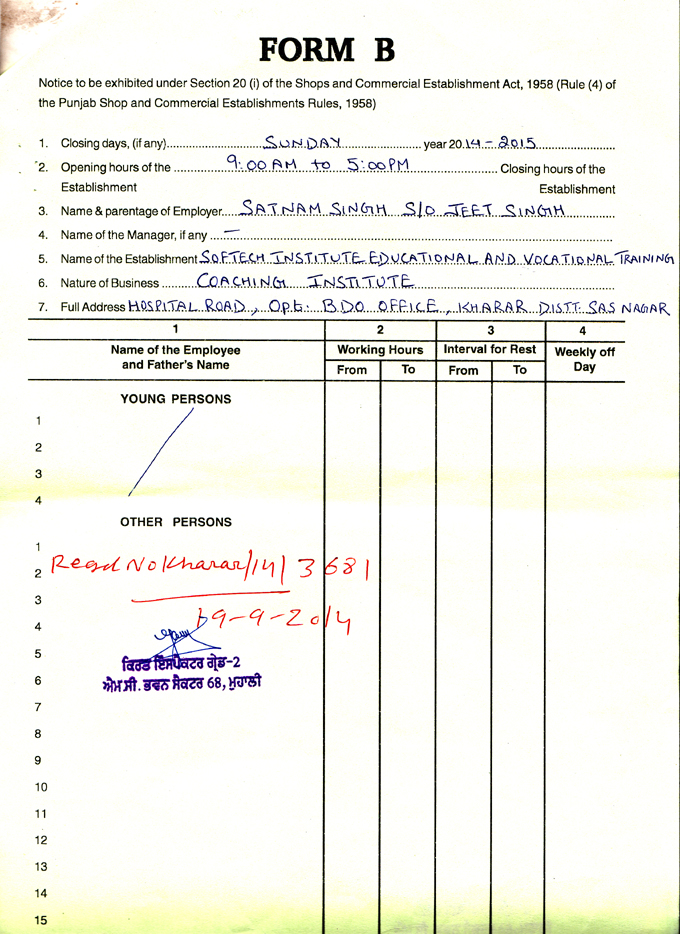 FORM B
Notice to be exhibited under Section 20 (i) of the Shops and Commercial Establishment Act, 1958 (Rule (4) of
the Punjab Shop and Commercial Establishments Rules, 1958)
1. Closing days, (if any) SUNDAY year 2014-2015
2. Opening hours of the 9:00 AM to 5:00 PM Closing hours of the
Establishment Establishment
3. Name & parentage of Employer SATNAM SINGH S/O JEET SINGH
4. Name of the Manager, if any —
5. Name of the Establishment SOFTECH INSTITUTE EDUCATIONAL AND VOCATIONAL TRAINING
6. Nature of Business COACHING INSTITUTE
7. Full Address HOSPITAL ROAD, Opt. BDO OFFICE, KHARAR DISTT SAS NAGAR
1 2 3 4
Name of the Employee and Father's Name
Working Hours
Interval for Rest
Weekly off Day
From To From To
YOUNG PERSONS
1
2
3
4
OTHER PERSONS
1
2 Regd No Kharar/14/3681
3
4 19-9-2014
5 ਕਿਰਤ ਇੰਸਪੈਕਟਰ ਗ੍ਰੇਡ-2
6 ਐਮ.ਸੀ. ਭਵਨ ਸੈਕਟਰ 68, ਮੁਹਾਲੀ
7
8
9
10
11
12
13
14
15